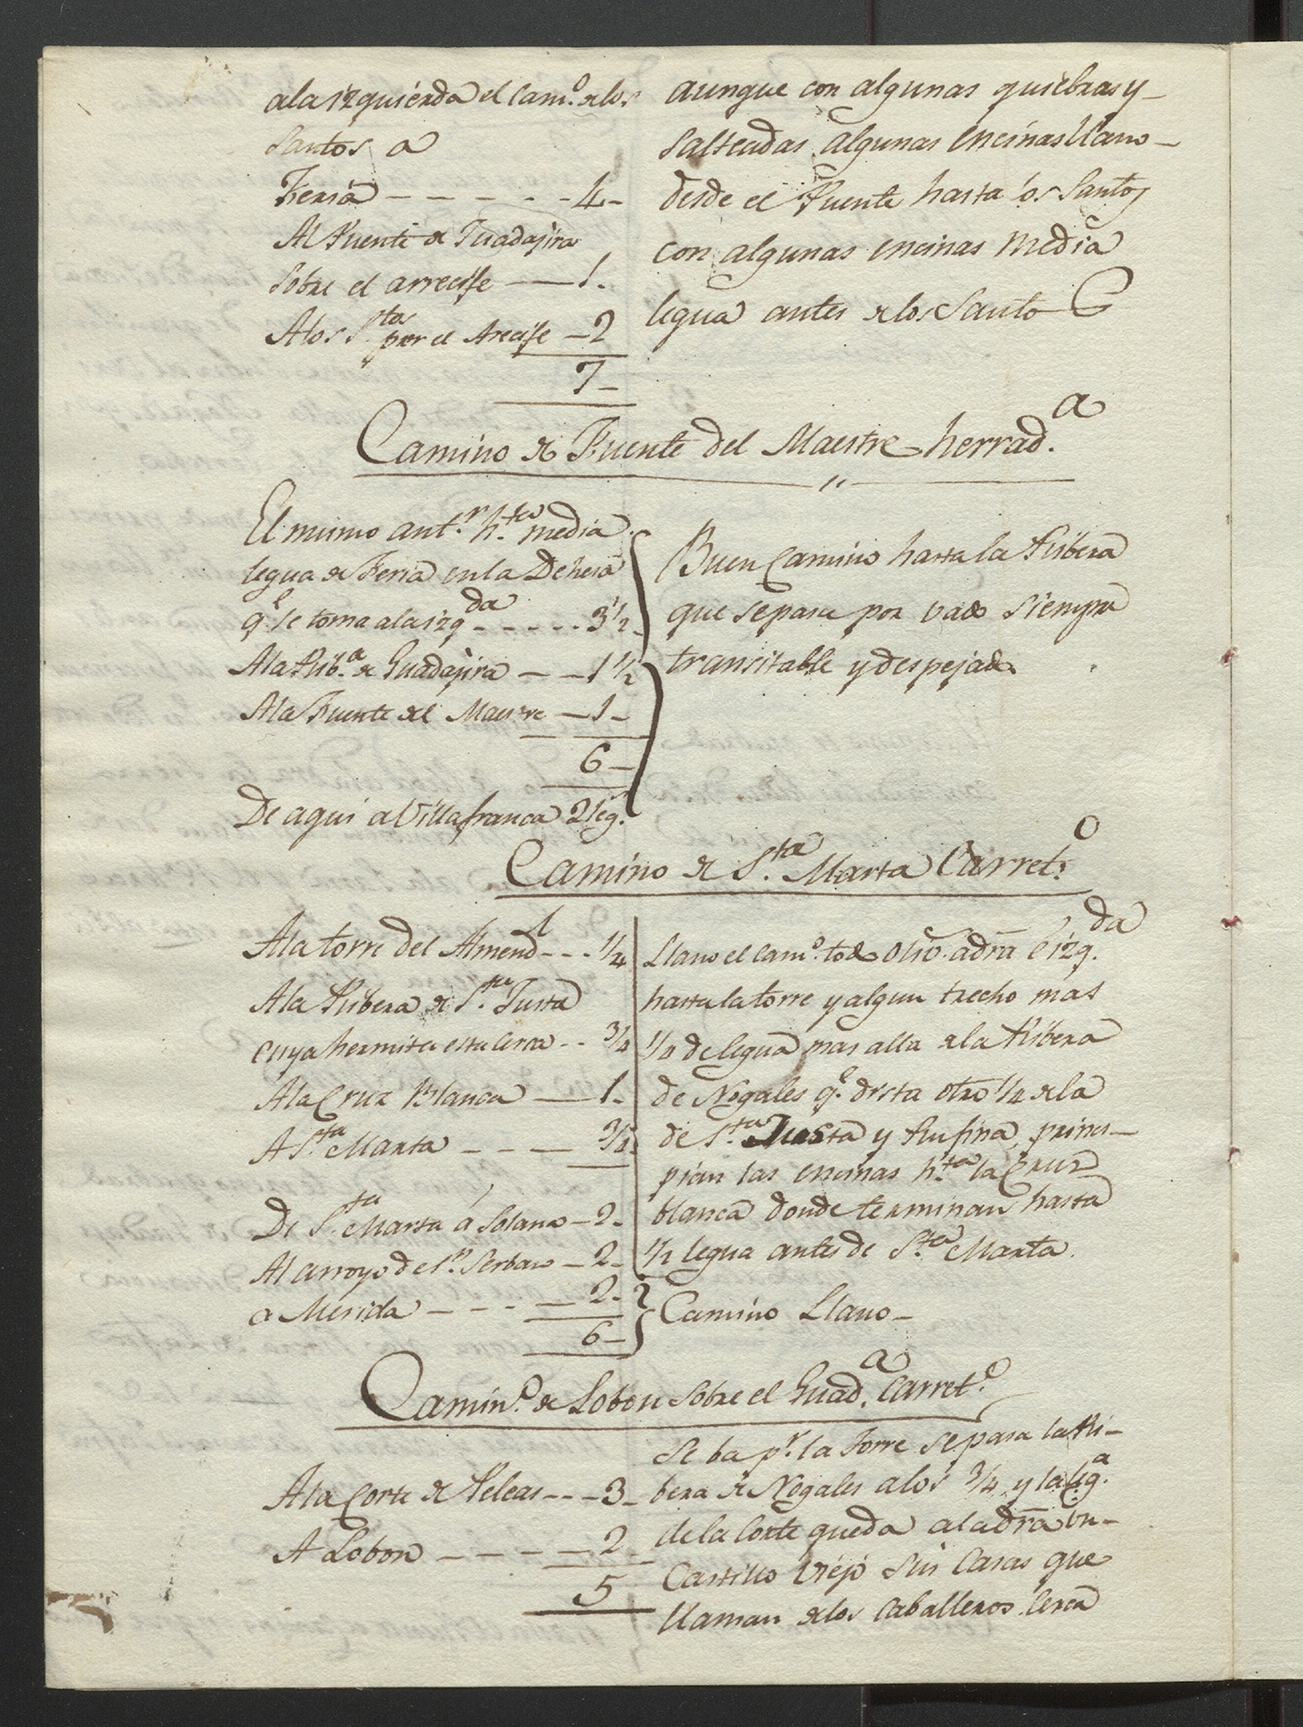 ala izquierda el Cam.º delos
Santos a
Feria - - - - - - 4 -
Al Puente de Guadajira
sobre el arrecife — 1.
Alos S.tos por el Arecife — 2
7 -
aunque con algunas quiebras y -
salteadas algunas encinas llano -
desde el Puente hasta los Santos
con algunas encinas media
legua antes delos Santos
Camino de Fuente del Maestre herrad.a
El mismo ant.r h.ta media
legua de Feria enla Dehesa
q.e se toma ala izq.da - - - - - 3 1/2 -
Ala Rib.a de Guadajira - - 1 1/2
Ala Fuente del Maestre — 1 -
6 -
De aqui a Villafranca 2 leg.s
Buen Camino hasta la Ribera
que se pasa por vado siempre
transitable y despejado
Camino de S.ta Marta Carret.º
Ala torre del Almend.l - - - 1/4
Ala Ribera de S.ta Justa
cuya hermita esta cerca - - 3/4
Ala Cruz Blanca — 1 -
A S.ta Marta - - - 3/4
De S.ta Marta á Solana — 2 -
Al arroyo de S.n Serban — 2 -
a Merida - - - — 2 -
6 -
Llano el cam.º todo olib. a dra é izq.da
hasta la torre y algun trecho mas
1/4 de legua mas alla dela Ribera
de Nogales q.e dista otro 1/4 dela
de S.ta Justa y Rufina, princi -
pian las encinas h.ta la Cruz
blanca donde terminan hasta
1/2 legua antes de S.ta Marta.
Camino Llano -
Camin.º de Lobon sobre el Guad.a Carret.º
Ala Corte de Peleas - - - 3 -
A Lobon - - - - — 2 -
5
Se ba p.r la Torre se pasa la Ri -
bera de Nogales alos 3/4 y la leg.a
dela Corte queda ala dra un -
Castillo viejo sin casas que
llaman delos Caballeros. Cerca